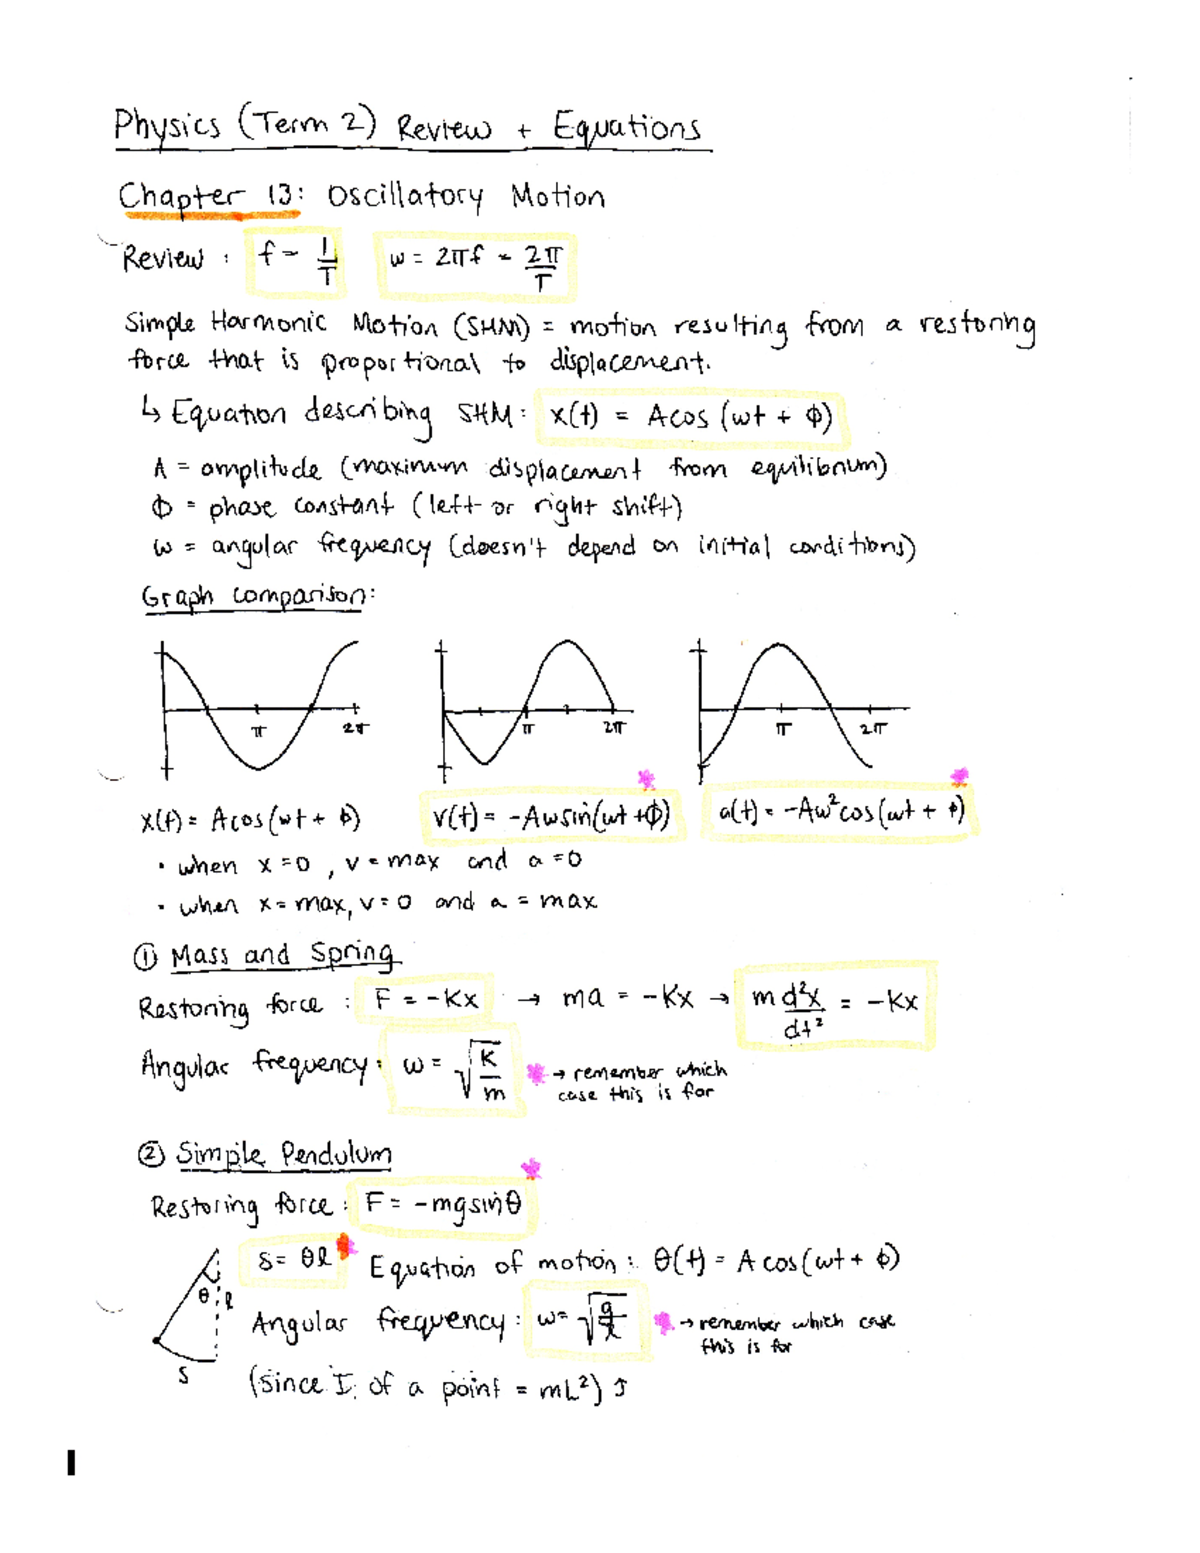 Physics (Term 2) Review + Equations
Chapter 13: Oscillatory Motion
Review : f = 1/T w = 2πf = 2π/T
Simple Harmonic Motion (SHM) = motion resulting from a restoring
force that is proportional to displacement.
↳ Equation describing SHM: x(t) = Acos (wt + Φ)
A = amplitude (maximum displacement from equilibrium)
Φ = phase constant (left or right shift)
w = angular frequency (doesn't depend on initial conditions)
Graph comparison:
π 2π π 2π π 2π
x(t) = Acos(wt + Φ) v(t) = -Awsin(wt + Φ) a(t) = -Aw²cos(wt + Φ)
• when x = 0, v = max and a = 0
• when x = max, v = 0 and a = max
① Mass and Spring
Restoring force : F = -Kx → ma = -Kx → m d²x/dt² = -Kx
Angular frequency: w = √K/m * → remember which
case this is for
② Simple Pendulum *
Restoring force: F = -mgsinθ
s = θl * Equation of motion: θ(t) = A cos(wt + Φ)
θ l
Angular frequency: w = √g/l * → remember which case
this is for
s
(since I of a point = mL²) ↑
1